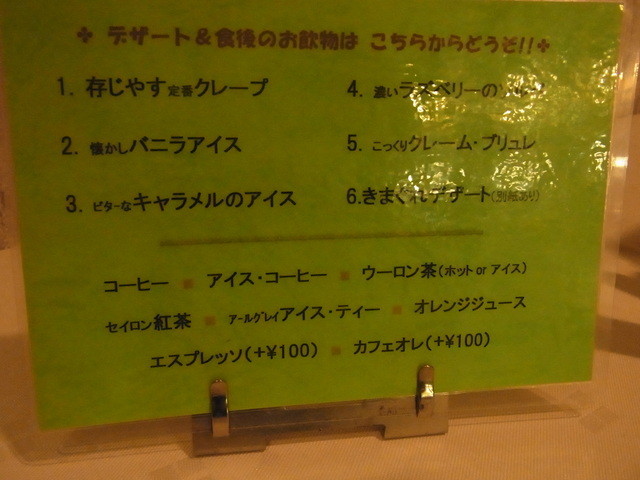 デザート＆食後のお飲物は こちらからどうぞ!!
1. 存じやす定番クレープ
4. 濃いラズベリーの
2. 懐かしバニラアイス
5. こっくりクレーム・ブリュレ
3. ビターなキャラメルのアイス
6.きまぐれデザート(別紙あり)
コーヒー ■ アイス・コーヒー ■ ウーロン茶(ホット or アイス)
セイロン紅茶 ■ アールグレイアイス・ティー ■ オレンジジュース
エスプレッソ(+¥100) ■ カフェオレ(+¥100)